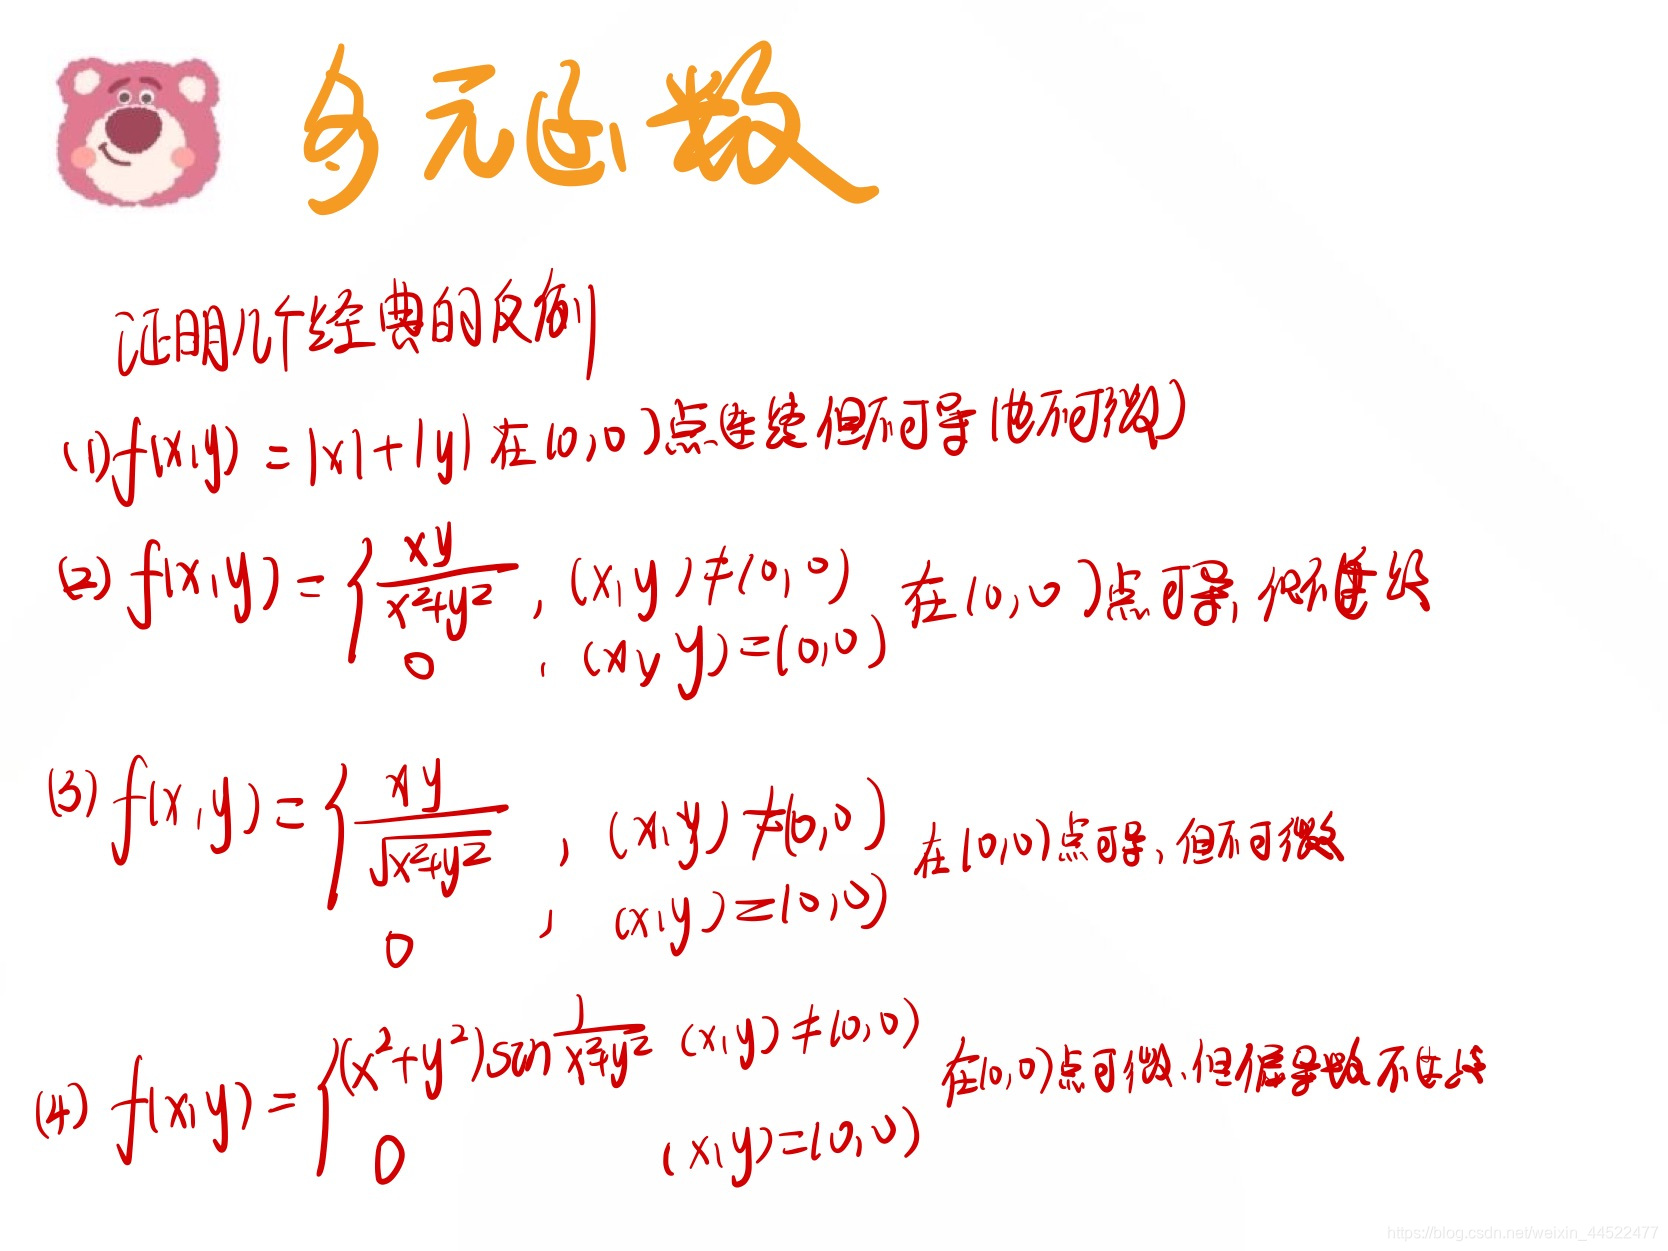 多元函数
证明几个经典的反例
(1) f(x,y) = |x|+|y| 在(0,0)点连续但不可导(也不可微)
(2) f(x,y) = { xy/(x²+y²) , (x,y)≠(0,0) 在(0,0)点可导,但不连续
0 , (x,y)=(0,0)
(3) f(x,y) = { xy/√(x²+y²) , (x,y)≠(0,0) 在(0,0)点可导,但不可微
0 , (x,y)=(0,0)
(4) f(x,y) = { (x²+y²)sin 1/(x²+y²) (x,y)≠(0,0) 在(0,0)点可微、但偏导数不连续
0 (x,y)=(0,0)
https://blog.csdn.net/weixin_44522477